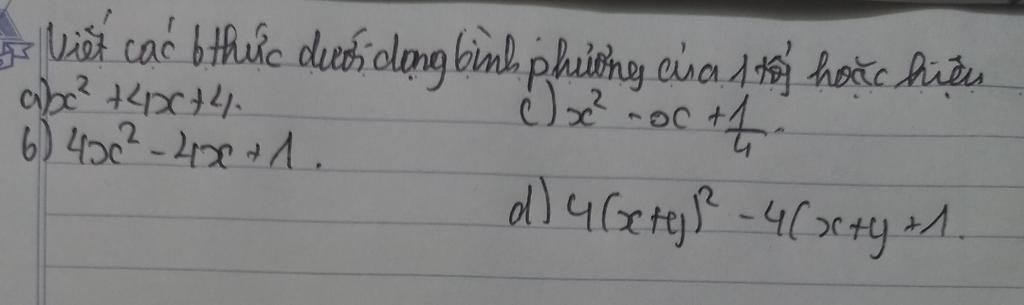 Viết các bthức dưới dạng bình phương của 1 tổng hoặc hiệu
a) x² + 4x + 4.
c) x² - x + 1/4.
b) 4x² - 4x + 1.
d) 4(x+y)² - 4(x+y + 1.